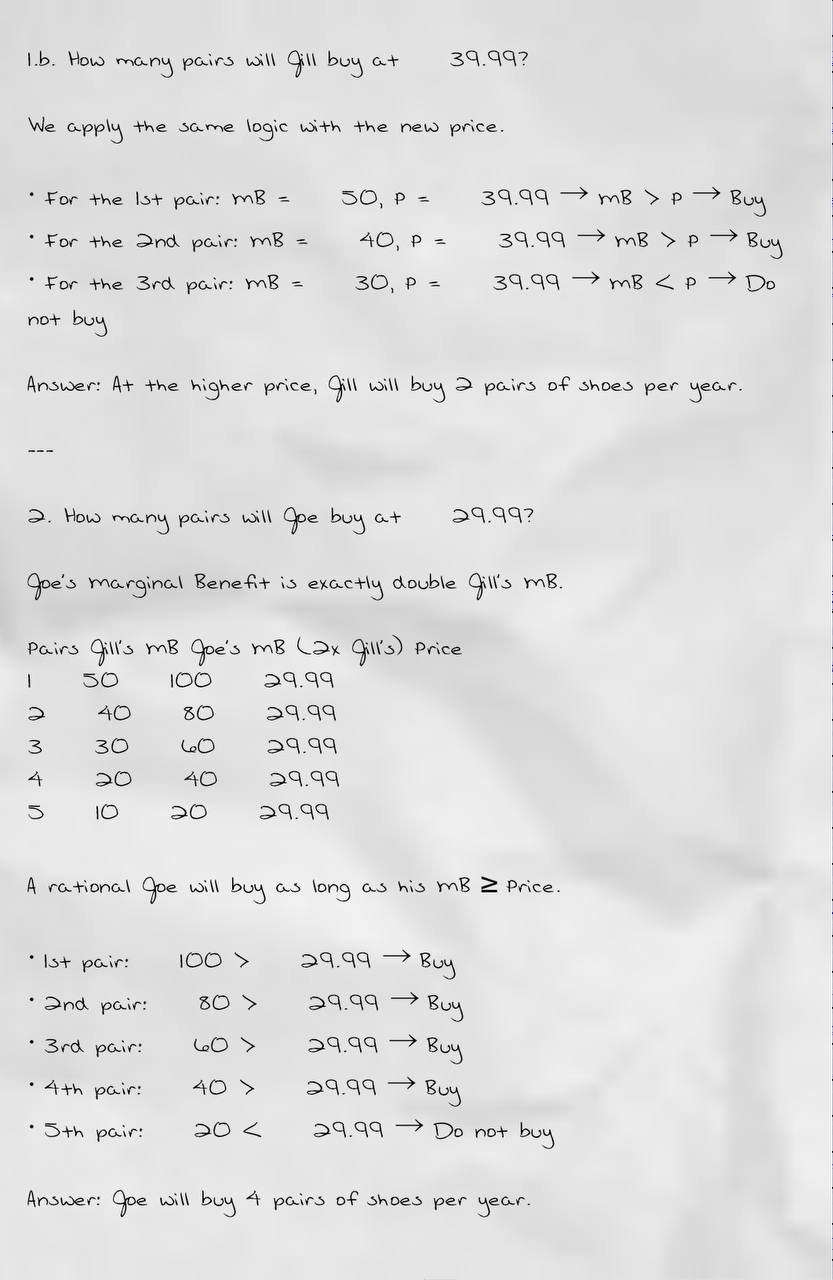 1.b. How many pairs will Jill buy at 39.99?
We apply the same logic with the new price.
• For the 1st pair: MB = 50, P = 39.99 → MB > P → Buy
• For the 2nd pair: MB = 40, P = 39.99 → MB > P → Buy
• For the 3rd pair: MB = 30, P = 39.99 → MB < P → Do
not buy
Answer: At the higher price, Jill will buy 2 pairs of shoes per year.
---
2. How many pairs will Joe buy at 29.99?
Joe's Marginal Benefit is exactly double Jill's MB.
Pairs Jill's MB Joe's MB (2x Jill's) Price
1 50 100 29.99
2 40 80 29.99
3 30 60 29.99
4 20 40 29.99
5 10 20 29.99
A rational Joe will buy as long as his MB ≥ Price.
• 1st pair: 100 > 29.99 → Buy
• 2nd pair: 80 > 29.99 → Buy
• 3rd pair: 60 > 29.99 → Buy
• 4th pair: 40 > 29.99 → Buy
• 5th pair: 20 < 29.99 → Do not buy
Answer: Joe will buy 4 pairs of shoes per year.